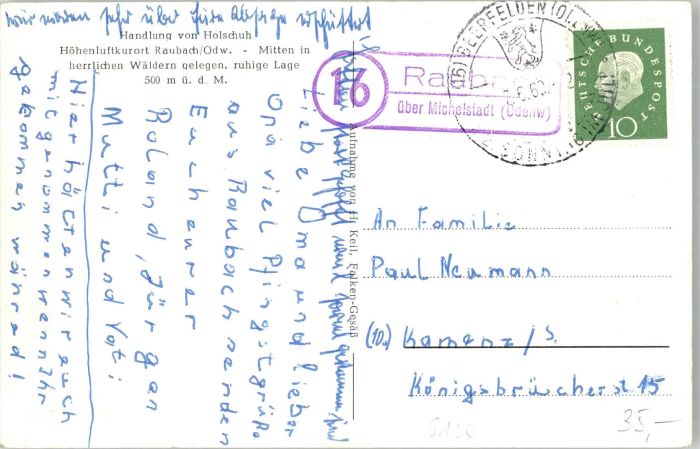 wir waren sehr über Eure Absage erschüttert
Handlung von Holschuh
Höhenluftkurort Raubach/Odw. - Mitten in
herrlichen Wäldern gelegen, ruhige Lage
500 m ü. d. M.
Liebe Oma und lieber
Opa viel Pfingstgrüße
aus Raubach senden
Euch eurer
Roland, Jürgen
Mutti und Vati
Hier hätten wir euch
mitgenommen wenn ihr
gekommen währed!
Aufnahme von H. Keil, Falken-Gesäß
16
Raubach
über Michelstadt (Odenw)
(16) BEERFELDEN (ODENW)
DEUTSCHE BUNDESPOST
10
An Familie
Paul Neumann
(10.) Kamenz/S.
Königsbrücherst 15
35,—